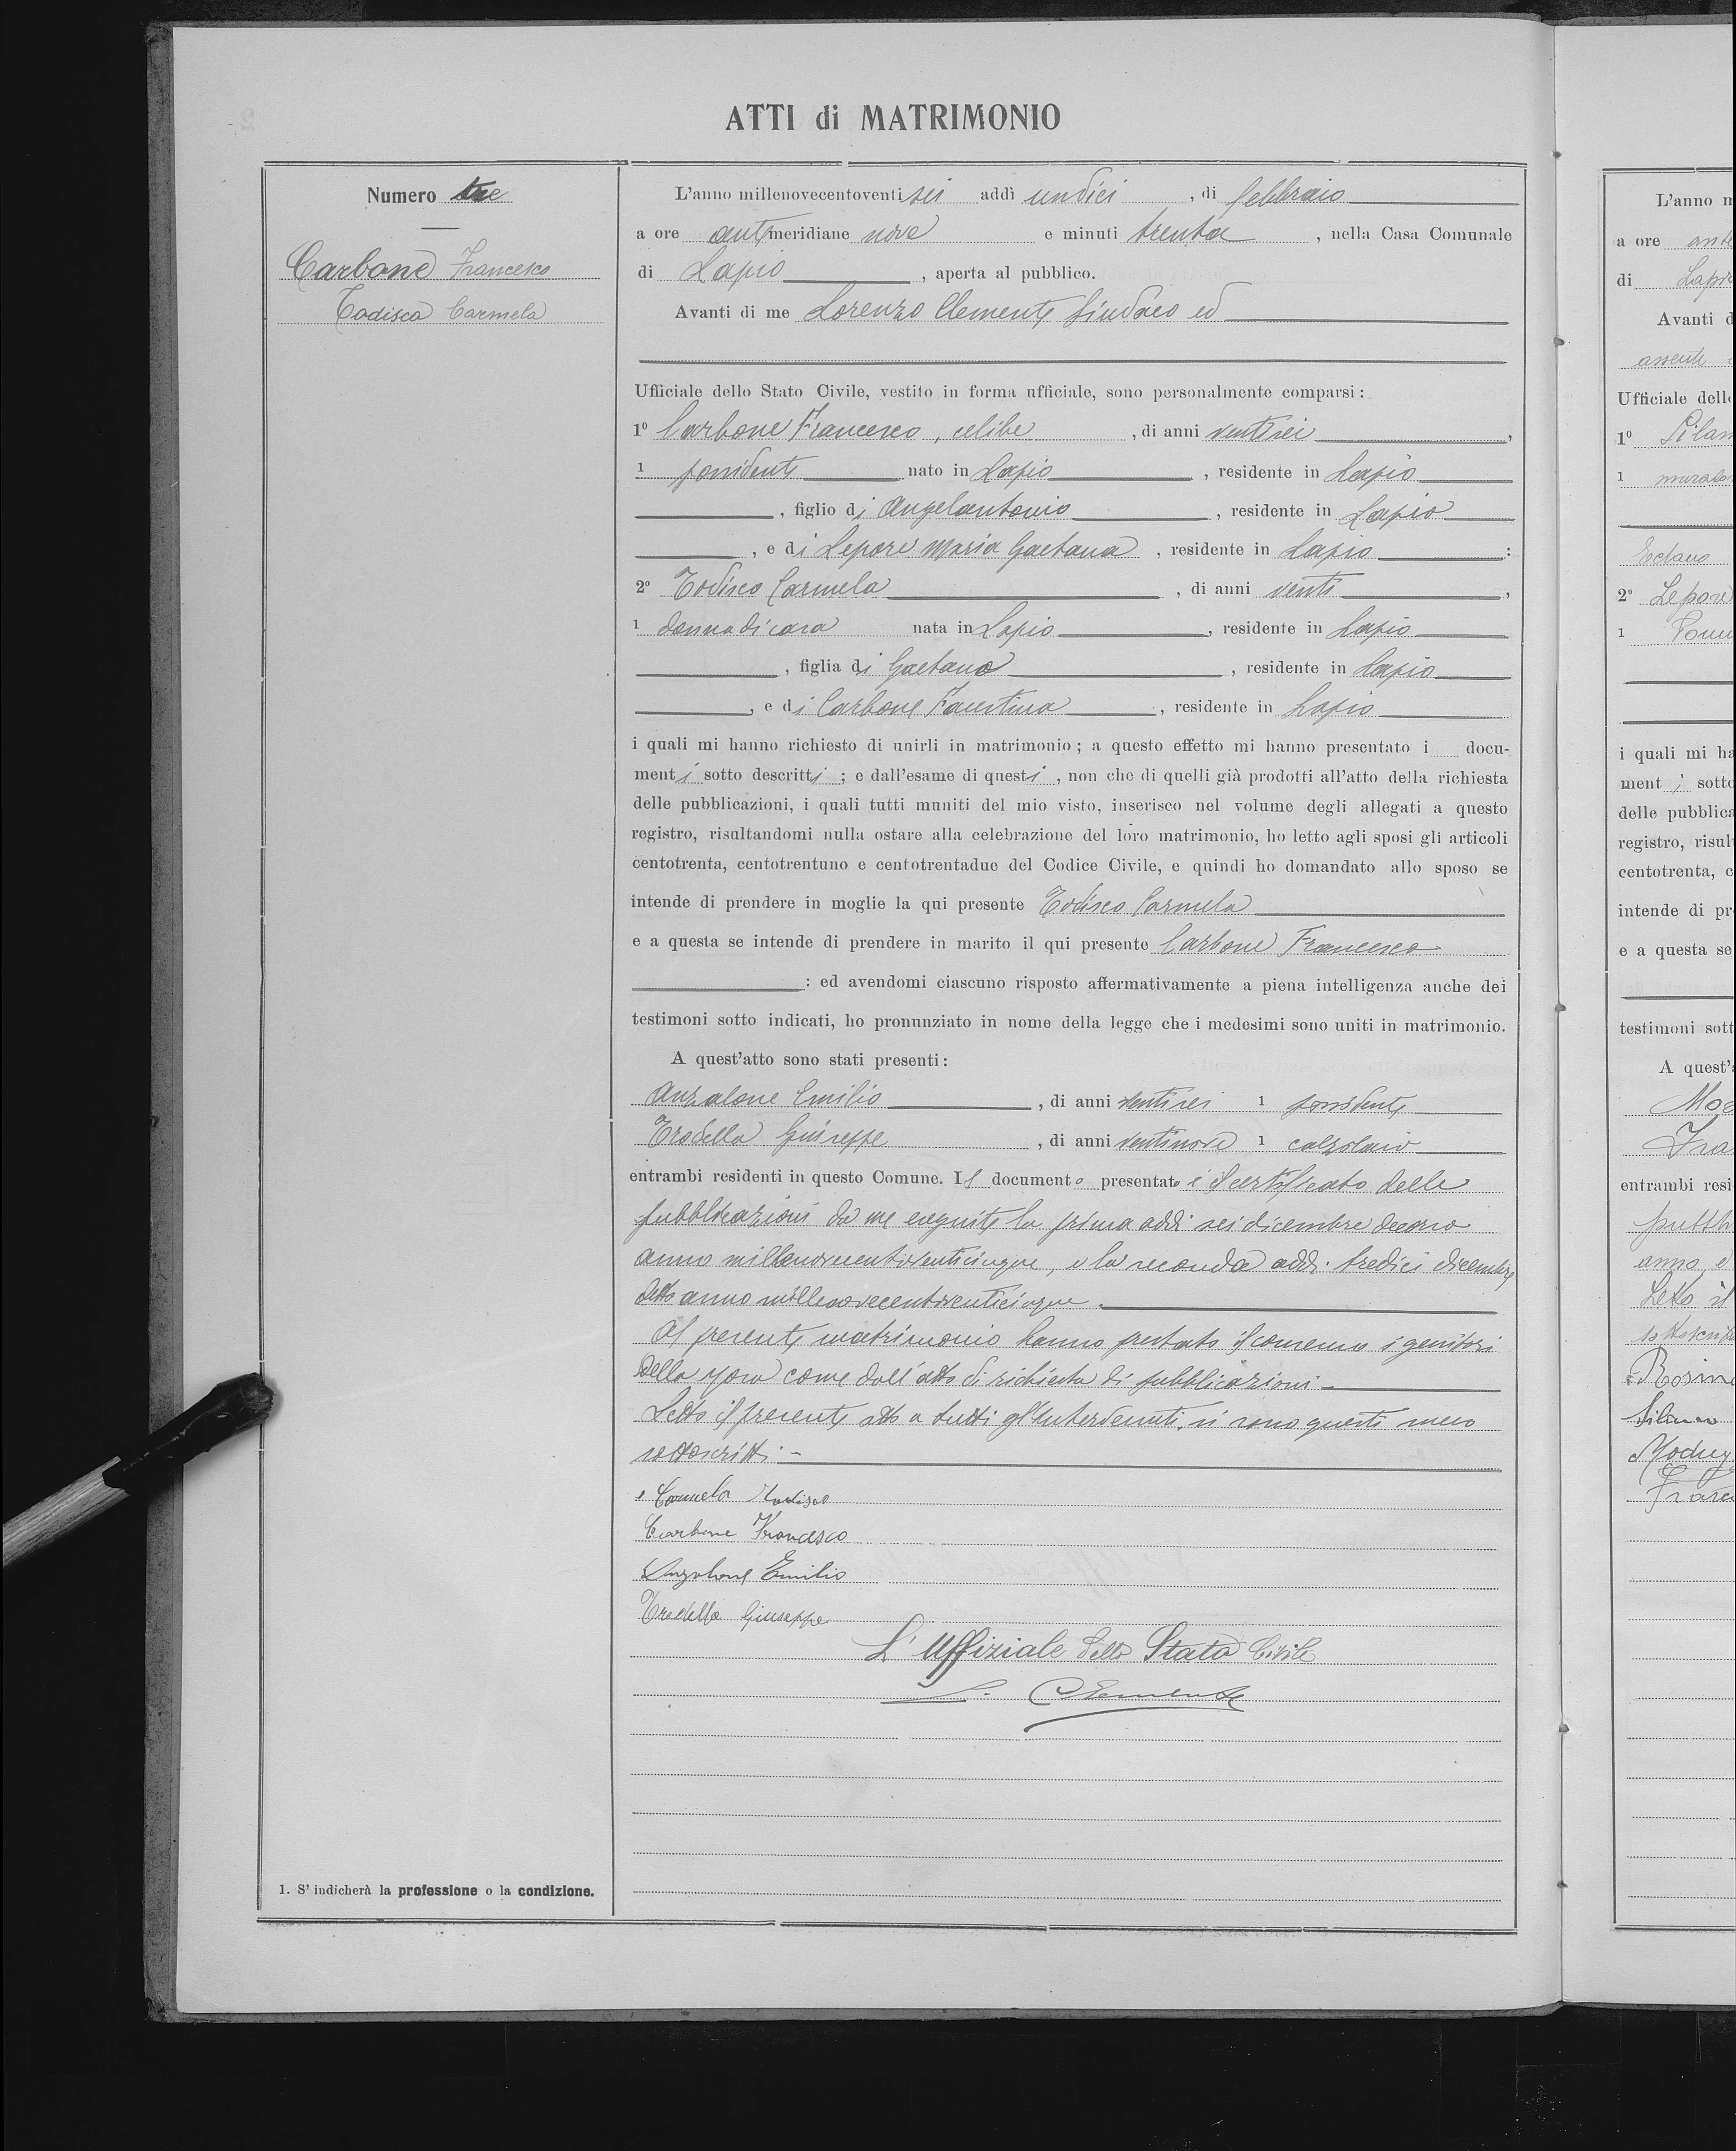 ATTI di MATRIMONIO
Numero tre
Carbone Francesco
Todisca Carmela
1. S' indicherà la professione o la condizione.
L'anno millenovecentoventisei addì undici, di febbraio
a ore antimeridiane nove e minuti trenta, nella Casa Comunale
di Lapio, aperta al pubblico.
Avanti di me Lorenzo Clemente Sindaco ed
Ufficiale dello Stato Civile, vestito in forma ufficiale, sono personalmente comparsi:
1º Carbone Francesco, celibe, di anni ventisei,
1 possidente nato in Lapio, residente in Lapio
, figlio di Angelantonio, residente in Lapio
, e di Lepore Maria Gaetana, residente in Lapio:
2º Todisco Carmela, di anni venti,
1 donna di casa nata in Lapio, residente in Lapio
, figlia di Gaetano, residente in Lapio
, e di Carbone Faustina, residente in Lapio
i quali mi hanno richiesto di unirli in matrimonio; a questo effetto mi hanno presentato i docu-
menti sotto descritti; e dall'esame di questi, non che di quelli già prodotti all'atto della richiesta
delle pubblicazioni, i quali tutti muniti del mio visto, inserisco nel volume degli allegati a questo
registro, risultandomi nulla ostare alla celebrazione del loro matrimonio, ho letto agli sposi gli articoli
centotrenta, centotrentuno e centotrentadue del Codice Civile, e quindi ho domandato allo sposo se
intende di prendere in moglie la qui presente Todisco Carmela
e a questa se intende di prendere in marito il qui presente Carbone Francesco
: ed avendomi ciascuno risposto affermativamente a piena intelligenza anche dei
testimoni sotto indicati, ho pronunziato in nome della legge che i medesimi sono uniti in matrimonio.
A quest'atto sono stati presenti:
Anzalone Emilio, di anni ventisei 1 possidente
Trodella Giuseppe, di anni ventinove 1 calzolaio
entrambi residenti in questo Comune. Il documento presentato è il certificato delle
pubblicazioni da me eseguite la prima addì sei dicembre decorso
anno millenovecentoventicinque, e la seconda addì tredici dicembre
detto anno millenovecentoventicinque.
Al presente matrimonio hanno prestato il consenso i genitori
della sposa come dall'atto di richiesta di pubblicazioni.
Letto il presente atto a tutti gl'intervenuti, si sono questi meco
sottoscritti.
Carmela Todisco
Carbone Francesco
Anzalone Emilio
Trodella Giuseppe
L'Uffiziale dello Stato Civile
L. Clemente
L'anno
a ore ante
di Lapio
Avanti
assente
Ufficiale
1º
1
2º Lepore
1
i quali mi
ment i
delle
registro,
centotrenta,
intende di
e a questa se
testimoni
A
entrambi
anno, e
Letto il